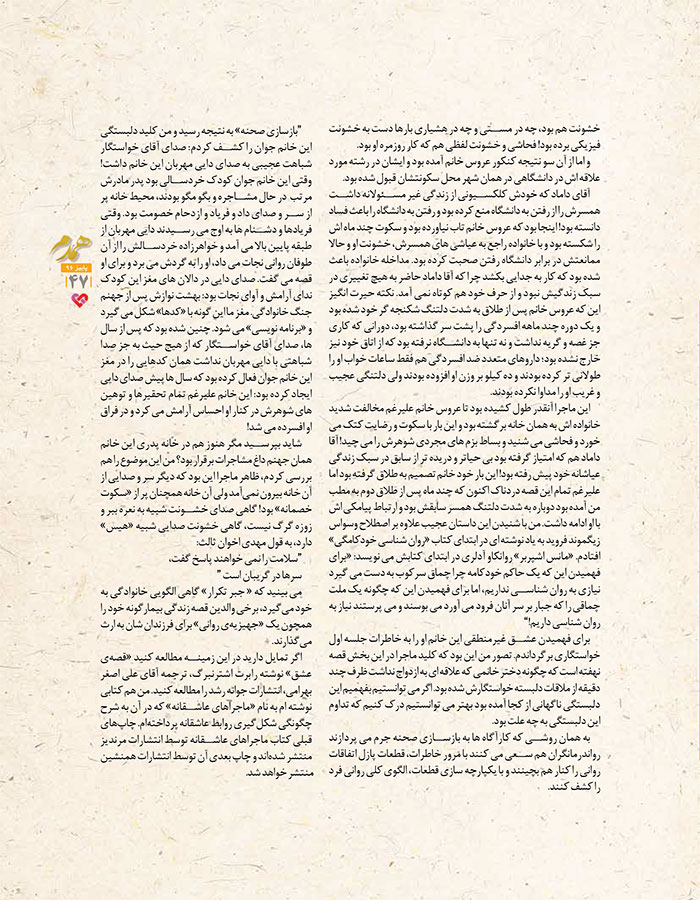 خشونت هم بود، چه در مستی و چه در هشیاری بارها دست به خشونت
فیزیکی برده بود! فحاشی و خشونت لفظی هم که کار روزمره او بود.
و اما از آن سو نتیجه کنکور عروس خانم آمده بود و ایشان در رشته مورد
علاقه اش در دانشگاهی در همان شهر محل سکونتشان قبول شده بود.
آقای داماد که خودش کلکسیونی از زندگی غیر مسئولانه داشت
همسرش را از رفتن به دانشگاه منع کرده بود و رفتن به دانشگاه را باعث فساد
دانسته بود! اینجا بود که عروس خانم تاب نیاورده بود و سکوت چند ماه اش
را شکسته بود و با خانواده راجع به عیاشی های همسرش، خشونت او و حالا
ممانعتش در برابر دانشگاه رفتن صحبت کرده بود. مداخله خانواده باعث
شده بود که کار به جدایی بکشد چرا که آقا داماد حاضر به هیچ تغییری در
سبک زندگیش نبود و از حرف خود هم کوتاه نمی آمد. نکته حیرت انگیز
این که عروس خانم پس از طلاق به شدت دلتنگ شکنجه گر خود شده بود
و یک دوره چند ماهه افسردگی را پشت سر گذاشته بود، دورانی که کاری
جز غصه و گریه نداشت و نه تنها به دانشگاه نرفته بود که از اتاق خود نیز
خارج نشده بود؛ داروهای متعدد ضد افسردگی هم فقط ساعات خواب او را
طولانی تر کرده بودند و ده کیلو بر وزن او افزوده بودند ولی دلتنگی عجیب
و غریب او را مداوا نکرده بودند.
این ماجرا آنقدر طول کشیده بود تا عروس خانم علیرغم مخالفت شدید
خانواده اش به همان خانه برگشته بود و این بار با سکوت و رضایت کتک می
خورد و فحاشی می شنید و بساط بزم های مجردی شوهرش را می چید! آقا
داماد هم که امتیاز گرفته بود بی حیاتر و دریده تر از سابق در سبک زندگی
عیاشانه خود پیش رفته بود! این بار خود خانم تصمیم به طلاق گرفته بود اما
علیرغم تمام این قصه دردناک اکنون که چند ماه پس از طلاق دوم به مطب
من آمده بود دوباره به شدت دلتنگ همسر سابقش بود و ارتباط پیامکی اش
با او ادامه داشت. من با شنیدن این داستان عجیب علاوه بر اصطلاح وسواس
زیگموند فروید به یاد نوشته ای در ابتدای کتاب «روان شناسی خودکامگی»
افتادم. «مانس اشپربر» روانکاو آدلری در ابتدای کتابش می نویسد: «برای
فهمیدن این که یک حاکم خودکامه چرا چماق سرکوب به دست می گیرد
نیازی به روان شناسی نداریم، اما برای فهمیدن این که چگونه یک ملت
چماقی را که جبار بر سر آنان فرود می آورد می بوسند و می پرستند نیاز به
روان شناسی داریم!"
برای فهمیدن عشق غیرمنطقی این خانم او را به خاطرات جلسه اول
خواستگاری برگرداندم. تصور من این بود که کلید ماجرا در این بخش قصه
نهفته است که چگونه دختر خانمی که علاقه ای به ازدواج نداشت ظرف چند
دقیقه از ملاقات دلبسته خواستگارش شده بود. اگر می توانستیم بفهمیم این
دلبستگی ناگهانی از کجا آمده بود بهتر می توانستیم درک کنیم که تداوم
این دلبستگی به چه علت بود.
به همان روشی که کارآگاه ها به بازسازی صحنه جرم می پردازند
رواندرمانگران هم سعی می کنند با مرور خاطرات، قطعات پازل اتفاقات
روانی را کنار هم بچینند و با یکپارچه سازی قطعات، الگوی کلی روانی فرد
را کشف کنند.
"بازسازی صحنه» به نتیجه رسید و من کلید دلبستگی
این خانم جوان را کشف کردم: صدای آقای خواستگار
شباهت عجیبی به صدای دایی مهربان این خانم داشت!
وقتی این خانم جوان کودک خردسالی بود پدر مادرش
مرتب در حال مشاجره و بگو مگو بودند، محیط خانه پر
از سر و صدای داد و فریاد و ازدحام خصومت بود. وقتی
فریادها و دشنام ها به اوج می رسیدند دایی مهربان از
طبقه پایین بالا می آمد و خواهرزاده خردسالش را از آن
طوفان روانی نجات می داد، او را به گردش می برد و برای او
قصه می گفت. صدای دایی در دالان های مغز این کودک
ندای آرامش و آوای نجات بود؛ بهشت نوازش پس از جهنم
جنگ خانوادگی. مغز ما این گونه با «کدها» شکل می گیرد
و «برنامه نویسی» می شود. چنین شده بود که پس از سال
ها، صدای آقای خواستگار که از هیچ حیث به جز صدا
شباهتی با دایی مهربان نداشت همان کدهایی را در مغز
این خانم جوان فعال کرده بود که سال ها پیش صدای دایی
ایجاد کرده بود؛ این خانم علیرغم تمام تحقیرها و توهین
های شوهرش در کنار او احساس آرامش می کرد و در فراق
او افسرده می شد!
شاید بپرسید مگر هنوز هم در خانه پدری این خانم
همان جهنم داغ مشاجرات برقرار بود؟ من این موضوع را هم
بررسی کردم، ظاهر ماجرا این بود که دیگر سر و صدایی از
آن خانه بیرون نمی آمد ولی آن خانه همچنان پر از «سکوت
خصمانه» بود! گاهی صدای خشونت شبیه به نعره ببر و
زوزه گرگ نیست، گاهی خشونت صدایی شبیه «هیس»
دارد، به قول مهدی اخوان ثالث:
"سلامت را نمی خواهند پاسخ گفت،
سرها در گریبان است "
می بینید که «جبر تکرار» گاهی الگویی خانوادگی به
خود می گیرد، برخی والدین قصه زندگی بیمارگونه خود را
همچون یک «جهیزیه ی روانی» برای فرزندان شان به ارث
می گذارند.
اگر تمایل دارید در این زمینه مطالعه کنید «قصه ی
عشق» نوشته رابرت اشترنبرگ، ترجمه آقای علی اصغر
بهرامی، انتشارات جوانه رشد را مطالعه کنید. من هم کتابی
نوشته ام به نام «ماجراهای عاشقانه» که در آن به شرح
چگونگی شکل گیری روابط عاشقانه پرداخته‌ام. چاپ‌های
قبلی کتاب ماجراهای عاشقانه توسط انتشارات مرندیز
منتشر شده‌اند و چاپ بعدی آن توسط انتشارات همنشین
منتشر خواهد شد.
همدم
پاییز ۹۶
۴۷